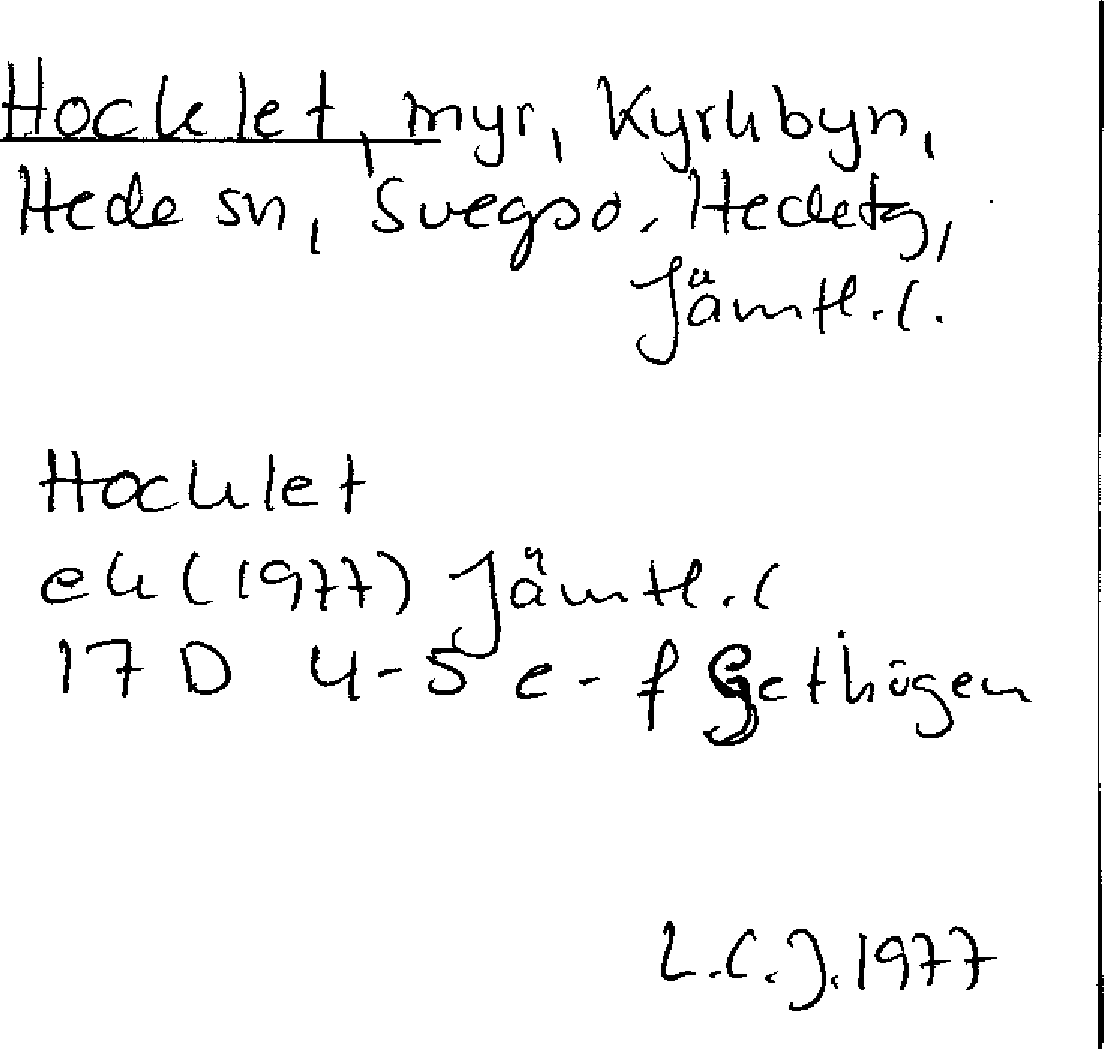 Hocklet, myr, Kyrkbyn,
Hede sn, Svegs o. Hede tg,
Jämtl. l.
Hocklet
ek (1977) Jämtl. l
17 D 4-5 e-f Gethögen
L.C.J. 1977